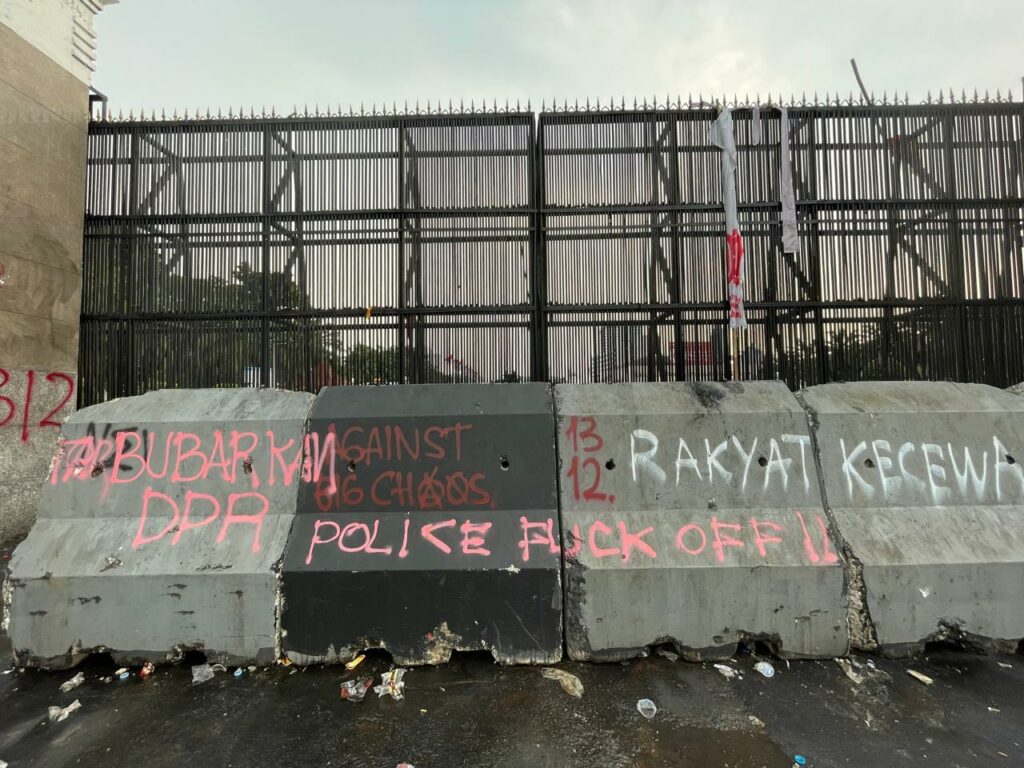 3/2
BUBARKAN
DPR
AGAINST
BIG CHAOS.
13
12.
RAKYAT KECEWA
POLICE FUCK OFF!!